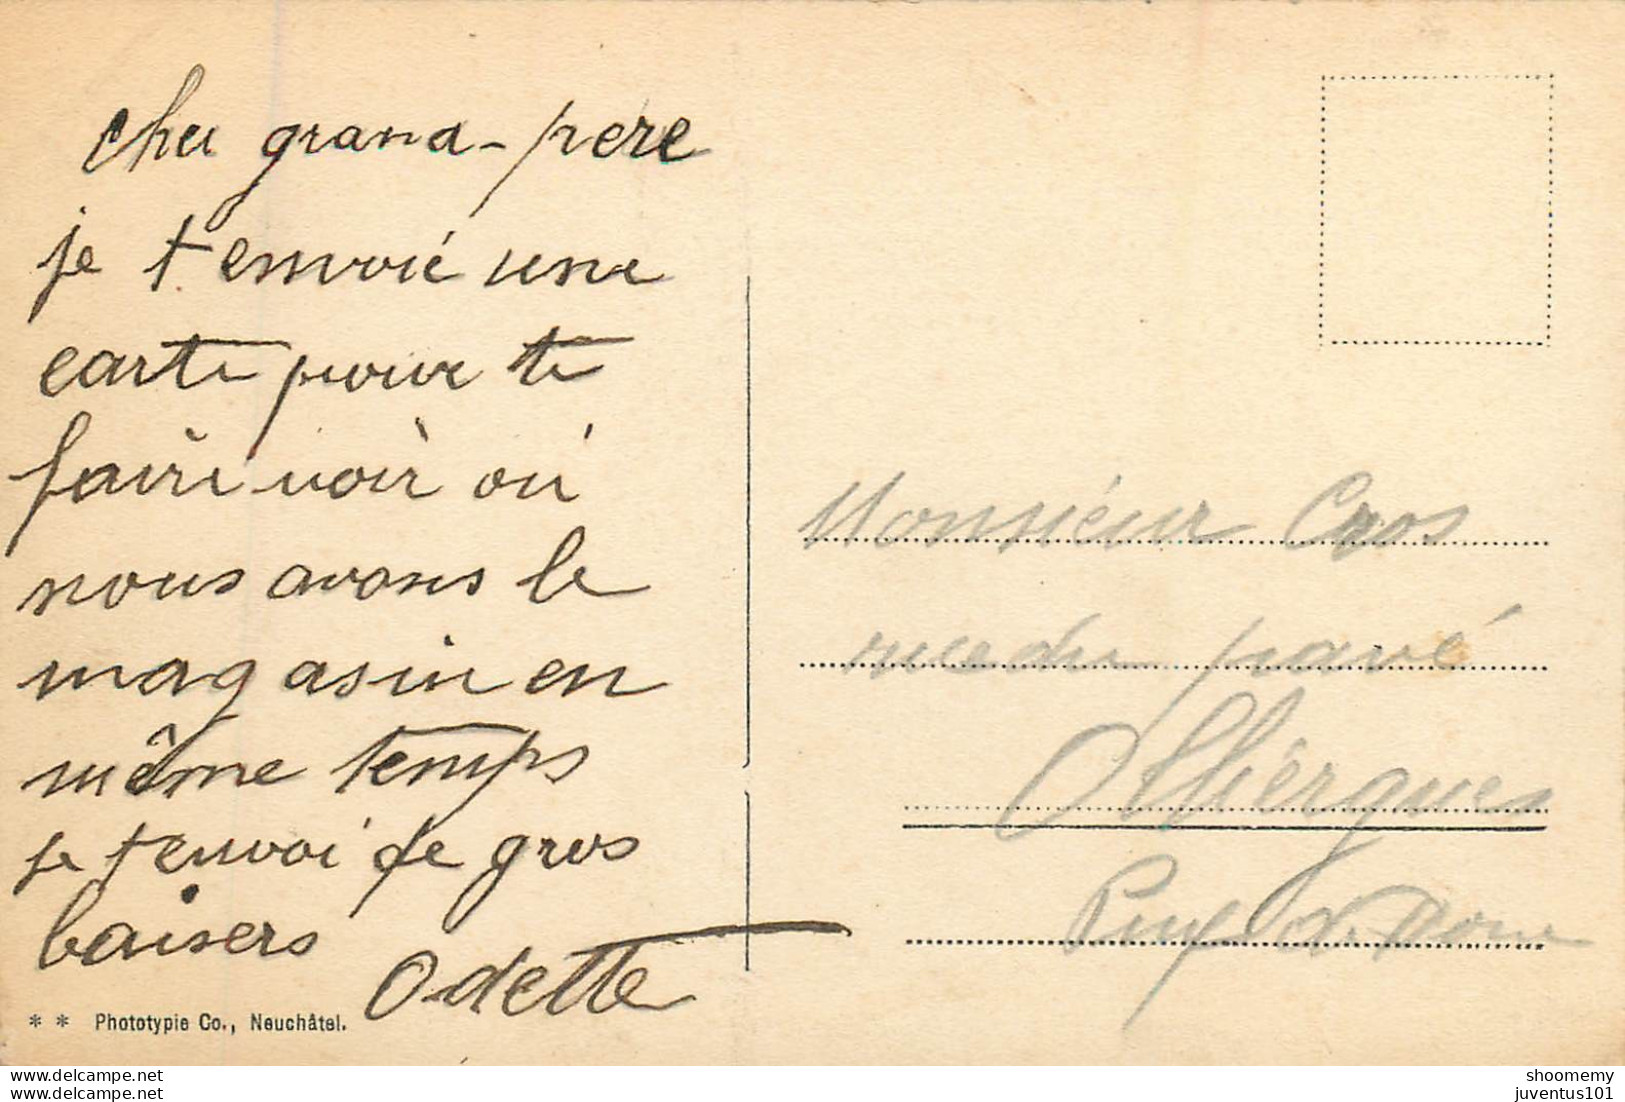 cher grand-père
je t envoie une
carte pour te
faire voir où
nous avons le
magasin en
même temps
je t envoi de gros
baisers Odette
* * Phototypie Co., Neuchâtel.
Monsieur Cros
rue du pavé
Olliergues
Puy d. Dome
www.delcampe.net
shoomemy
juventus101